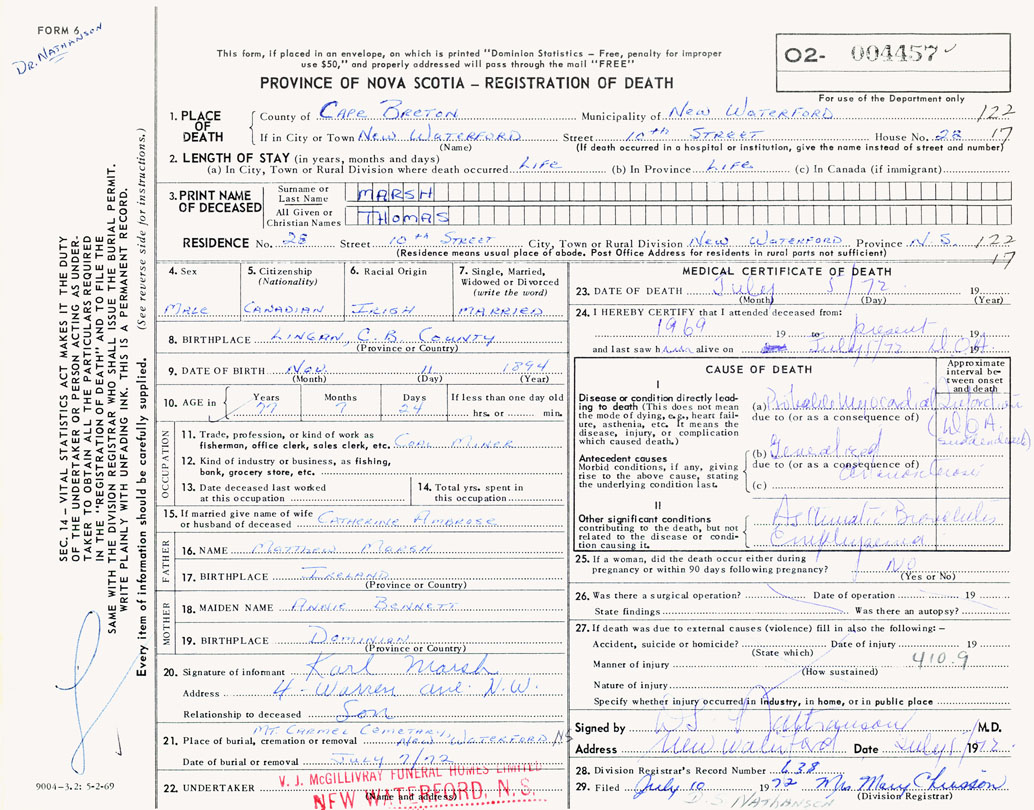 FORM 6
DR. NATHANSON
O2- 004457
For use of the Department only
This form, if placed in an envelope, on which is printed "Dominion Statistics – Free, penalty for improper
use $50," and properly addressed will pass through the mail "FREE"
PROVINCE OF NOVA SCOTIA – REGISTRATION OF DEATH
1. PLACE OF DEATH
County of CAPE BRETON Municipality of NEW WATERFORD 122
If in City or Town NEW WATERFORD Street 10TH STREET House No. 28 17
(Name) (If death occurred in a hospital or institution, give the name instead of street and number)
2. LENGTH OF STAY (in years, months and days)
(a) In City, Town or Rural Division where death occurred LIFE (b) In Province LIFE (c) In Canada (if immigrant)
3. PRINT NAME OF DECEASED
Surname or Last Name MARSH
All Given or Christian Names THOMAS
RESIDENCE No. 28 Street 10TH STREET City, Town or Rural Division NEW WATERFORD Province N.S. 122
(Residence means usual place of abode. Post Office Address for residents in rural parts not sufficient) 17
4. Sex
MALE
5. Citizenship
(Nationality)
CANADIAN
6. Racial Origin
IRISH
7. Single, Married,
Widowed or Divorced
(write the word)
MARRIED
8. BIRTHPLACE LINGAN, C.B. COUNTY
(Province or Country)
9. DATE OF BIRTH NOV 11 1894
(Month) (Day) (Year)
10. AGE in Years Months Days If less than one day old
77 7 24 hrs. or min.
OCCUPATION
11. Trade, profession, or kind of work as
fisherman, office clerk, sales clerk, etc. COAL MINER
12. Kind of industry or business, as fishing,
bank, grocery store, etc.
13. Date deceased last worked
at this occupation
14. Total yrs. spent in
this occupation
15. If married give name of wife
or husband of deceased CATHERINE AMBROSE
FATHER
16. NAME MATTHEW MARSH
17. BIRTHPLACE IRELAND
(Province or Country)
MOTHER
18. MAIDEN NAME ANNIE BENNETT
19. BIRTHPLACE DOMINION
(Province or Country)
20. Signature of informant Karl Marsh
Address 4- Warren ave. N.W.
Relationship to deceased Son
MT. CARMEL CEMETARY
21. Place of burial, cremation or removal NEW WATERFORD NS
Date of burial or removal JULY 7/72
22. UNDERTAKER V. J. McGILLIVRAY FUNERAL HOMES LIMITED
(Name and address)
NEW WATERFORD, N. S.
MEDICAL CERTIFICATE OF DEATH
23. DATE OF DEATH July 5/72 19
(Month) (Day) (Year)
24. I HEREBY CERTIFY that I attended deceased from:
1969 19 to present 19
and last saw h alive on July 5/72 D.O.A. 19
CAUSE OF DEATH
Approximate
interval be-
tween onset
and death
I
Disease or condition directly lead-
ing to death (This does not mean
the mode of dying, e.g., heart fail-
ure, asthenia, etc. It means the
disease, injury, or complication
which caused death.)
(a) Probable Myocardial Infarction
due to (or as a consequence of) (D.O.A.
sudden death)
Antecedent causes
Morbid conditions, if any, giving
rise to the above cause, stating
the underlying condition last.
(b) Generalized
due to (or as a consequence of)
(c)
II
Other significant conditions
contributing to the death, but not
related to the disease or condi-
tion causing it.
Asthmatic Bronchitis
Emphysema
25. If a woman, did the death occur either during
pregnancy or within 90 days following pregnancy? No
(Yes or No)
26. Was there a surgical operation? Date of operation 19
State findings Was there an autopsy?
27. If death was due to external causes (violence) fill in also the following: –
Accident, suicide or homicide? Date of injury 19
(State which)
410.9
Manner of injury
(How sustained)
Nature of injury
Specify whether injury occurred in industry, in home, or in public place
Signed by Nathanson M.D.
Address New Waterford Date July 5/ 1972
28. Division Registrar's Record Number 638
29. Filed July 10 1972 Mrs. Mary Chiasson
(Division Registrar)
D. S. NATHANSON
SEC. 14 – VITAL STATISTICS ACT MAKES IT THE DUTY
OF THE UNDERTAKER OR PERSON ACTING AS UNDER-
TAKER TO OBTAIN ALL THE PARTICULARS REQUIRED
IN THE "REGISTRATION OF DEATH" AND TO FILE THE
SAME WITH THE DIVISION REGISTRAR WHO SHALL ISSUE THE BURIAL PERMIT.
WRITE PLAINLY WITH UNFADING INK. THIS IS A PERMANENT RECORD.
Every item of information should be carefully supplied. (See reverse side for instructions.)
9004–3.2: 5-2-69